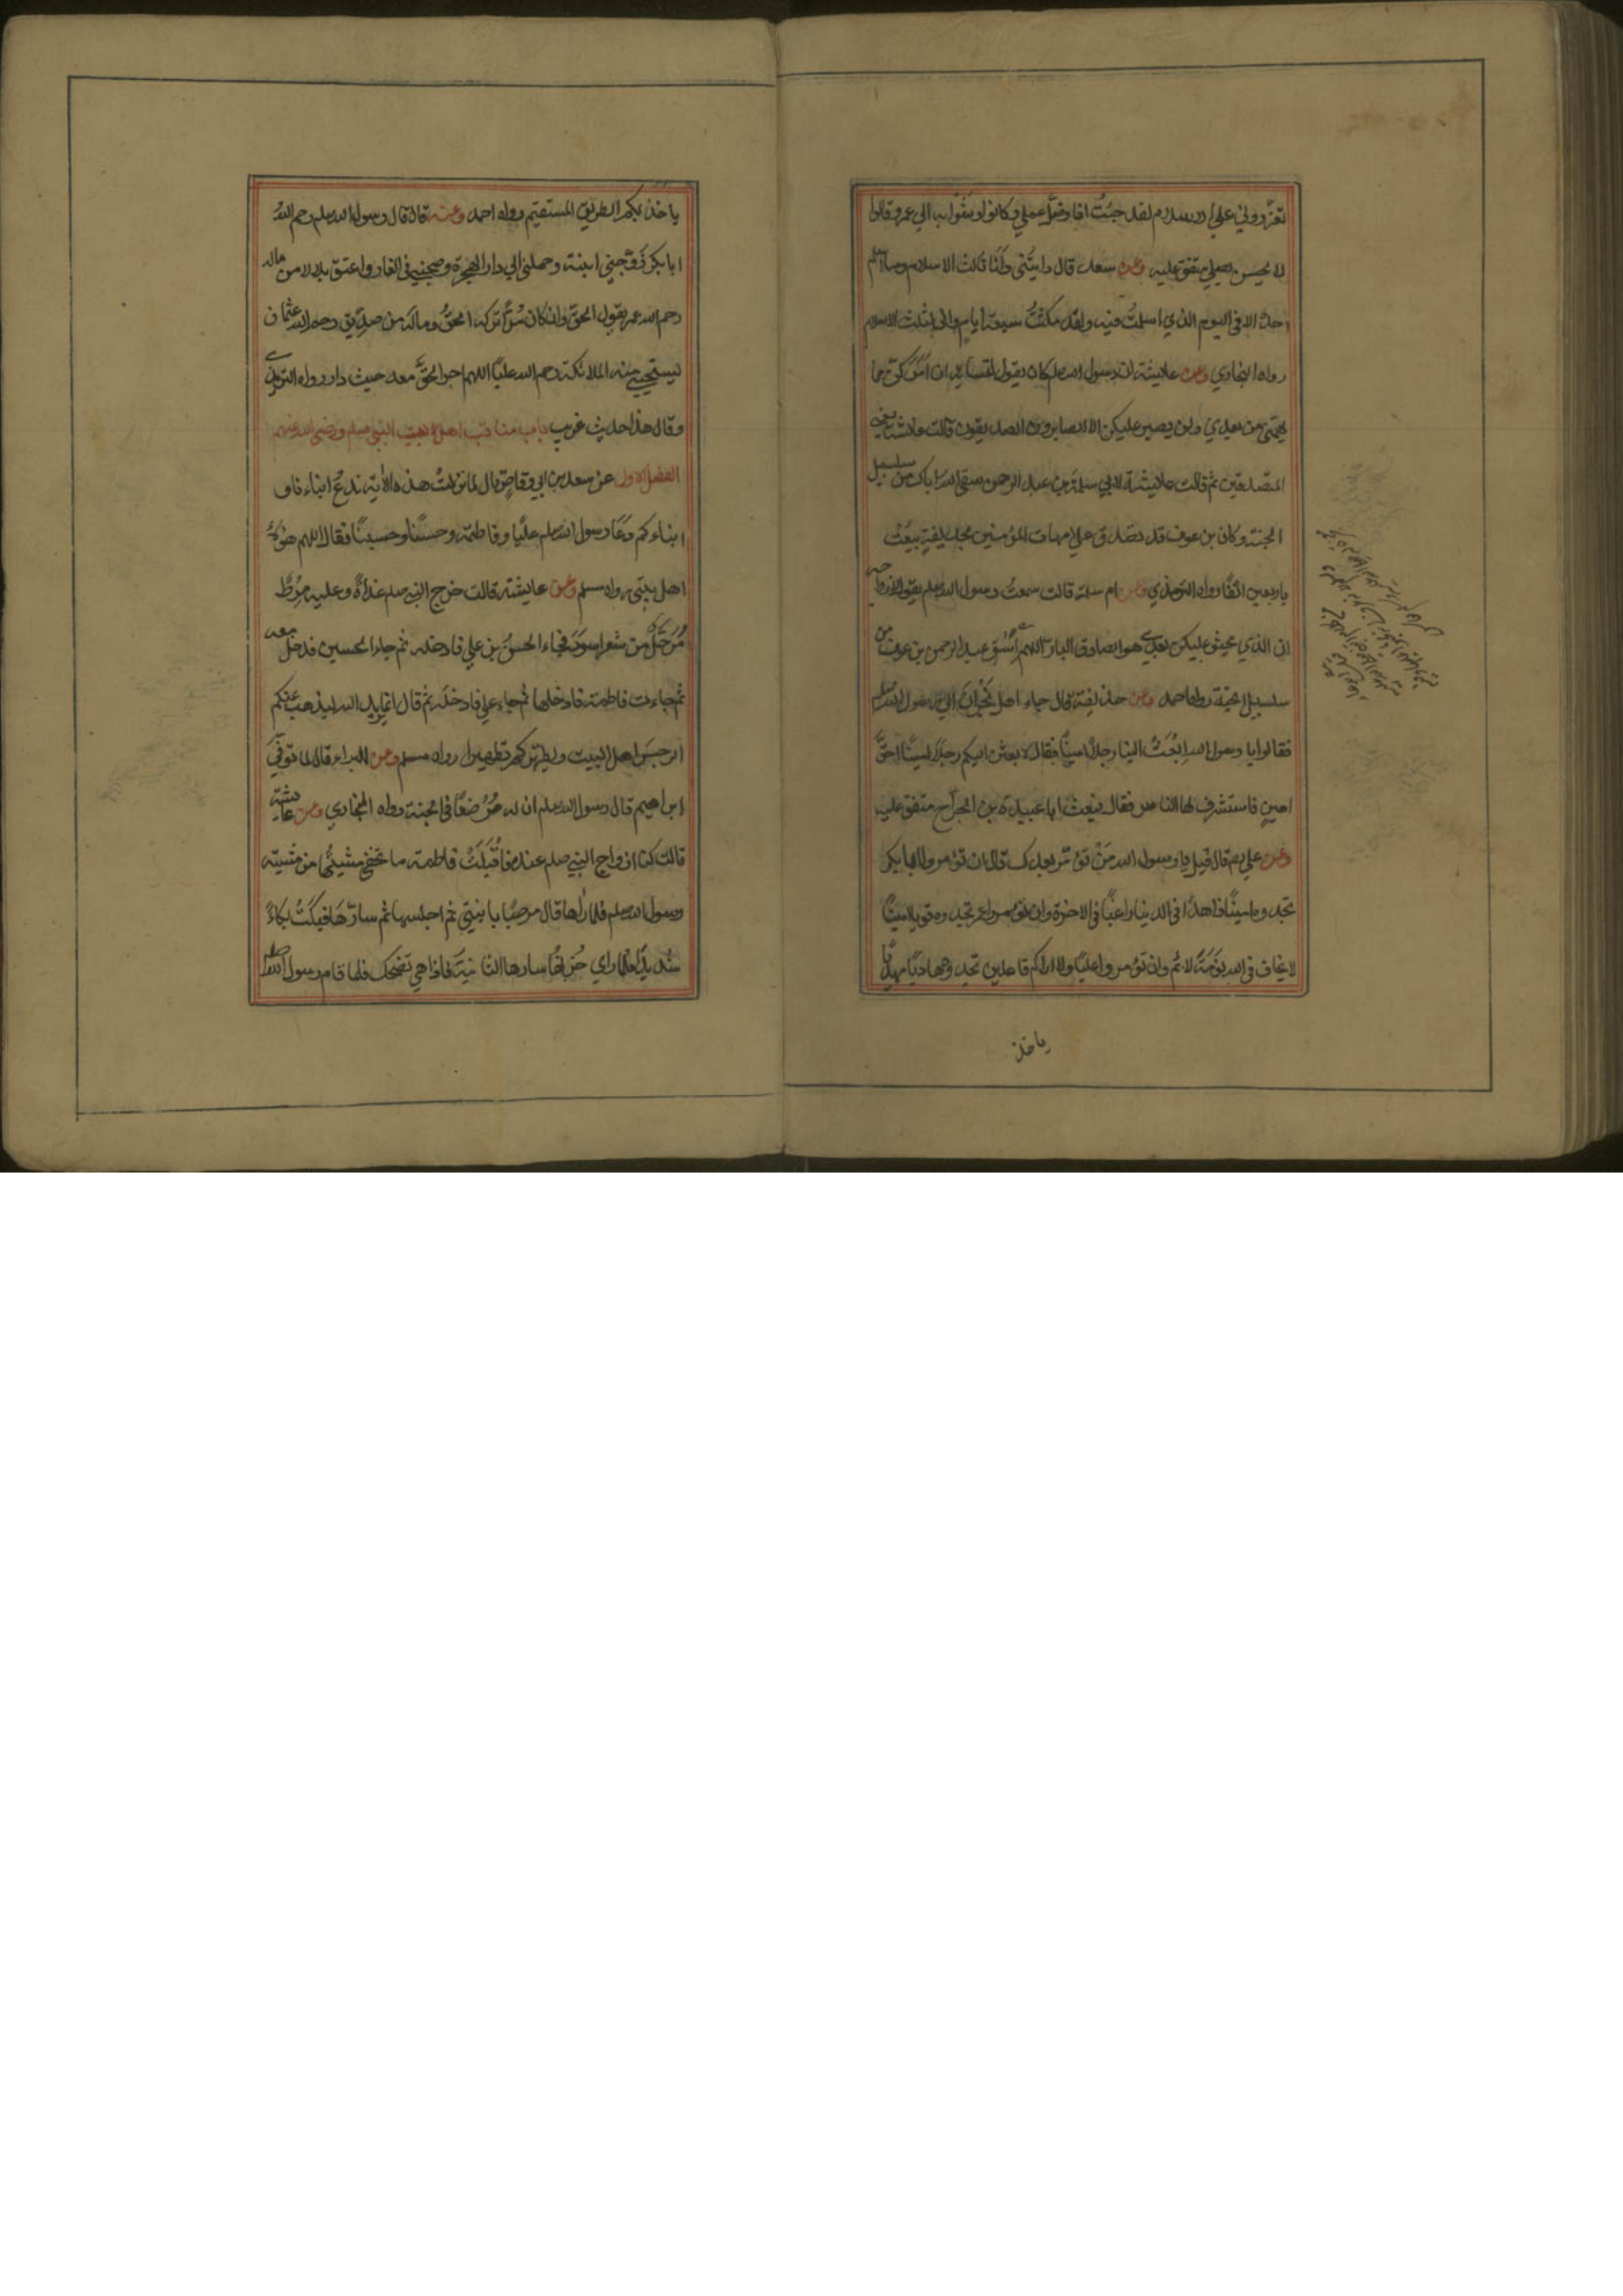 تعزروني علي الاسلام لقد خبتُ اذا وضلَّ عملي وكانوا وشوا به الي عمر وقالوا
لا يحسن يصلي متفق عليه وعن سعد قال رايتُني وانا ثالث الاسلام وما اسلم
احدٌ الا في اليوم الذي اسلمتُ فيه ولقد مكثتُ سبعة ايام واني لثلث الاسلام
رواه البخاري وعن عايشة ان رسول الله صلعم كان يقول لنسايه ان امركن مما
يهمّني من بعدي ولن يصبر عليكن الا الصابرون الصديقون قالت عايشة يعني
المتصدقين ثم قالت عايشة لابي سلمة بن عبد الرحمن سقي الله اباك من سلسبيل
الجنة وكان بن عوف قد تصدق علي امهات المؤمنين بحديقةٍ بيعتْ
باربعين الفًا رواه الترمذي وعن ام سلمة قالت سمعتُ رسول الله صلعم يقول لازواجه
ان الذي يحثو عليكن بعدي هو الصادق البارّ اللهم اسْقِ عبد الرحمن بن عوف من
سلسبيل الجنة رواه احمد وعن حذيفة قال جاء اهل نَجْرانَ الي رسول الله صلعم
فقالوا يا رسول الله ابْعَثْ الينا رجلاً امينًا فقال لابعثن اليكم رجلاً امينًا حقَّ
امينٍ فاستشرف لها الناس فقال فبعث ابا عبيدة بن الجراح متفق عليه
وعن علي رم قال قيل يا رسول الله مَنْ نؤمّر بعدك قال ان تؤمروا ابا بكر
تجدوه امينًا زاهدًا في الدينا راغبًا في الاخرة وان تؤمروا عمر تجدوه قويا امينًا
لا يخاف في الله لَوْمَةَ لايم وان تؤمروا عليًا ولا اراكم فاعلين تجدوه هاديًا مهديًّا
ياخذ
ياخذ بكم الطريق المستقيم رواه احمد وعنه قال قال رسول الله صلعم رحم اللهُ
ابا بكر زَوَّجني ابنته وحملني الي دار الهجرة وصحبني في الغار واعتق بلالا من ماله
رحم الله عمر يقول الحقَّ وان كان مُرًّا تركه الحقُّ وماله من صديق رحم الله عثمان
يستحيي منه الملائكة رحم الله عليًا اللهم ادر الحقَّ معه حيث دار رواه الترمذي
وقال هذا حديث غريب باب مناقب اهل بيت النبي صلعم ورضي الله عنهم
الفصل الاول عن سعد بن ابي وقاصٍ قال لما نزلتْ هذه الآية ندعُ ابناءنا و
ابناءكم دَعَا رسول الله صلعم عليًا وفاطمة وحسنًا وحسينًا فقال اللهم هؤلاء
اهل بيتي رواه مسلم وعن عايشة قالت خرج النبي صلعم غداةً وعليه مِرْطٌ
مُرَحَّلٌ من شعر اسودَ فجاء الحسنُ بن علي فادخله ثم جاء الحسين فدخل معه
ثم جاءت فاطمة فادخلها ثم جاء علي فادخله ثم قال انما يريد الله ليذهب عنكم
الرجسَ اهل البيت ويطهّركم تطهيرا رواه مسلم وعن البراء قال لما توفّيَ
ابراهيم قال رسول الله صلعم ان له مُرضِعًا في الجنة رواه البخاري وعن عايشة
قالت كنا ازواج النبي صلعم عنده فأقْبَلَتْ فاطمة ما تخفي مشيتُها من مشية
رسول الله صلعم فلما رآها قال مرحبًا بابنتي ثم اجلسها ثم سارّها فبكتْ بكاءً
شديدًا فلما راي حُزنها سارها الثانيةَ فاذا هي تضحك فلما قام رسول الله صلعم